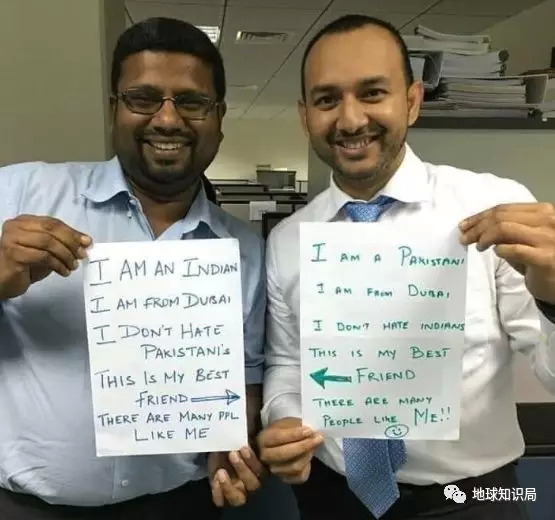 I AM AN INDIAN
I AM FROM DUBAI
I DON'T HATE
PAKISTANI'S
THIS IS MY BEST
FRIEND
THERE ARE MANY PPL
LIKE ME
I AM A PAKISTANI
I AM FROM DUBAI
I DON'T HATE INDIANS
THIS IS MY BEST
FRIEND
THERE ARE MANY
PEOPLE LIKE ME!!
地球知识局